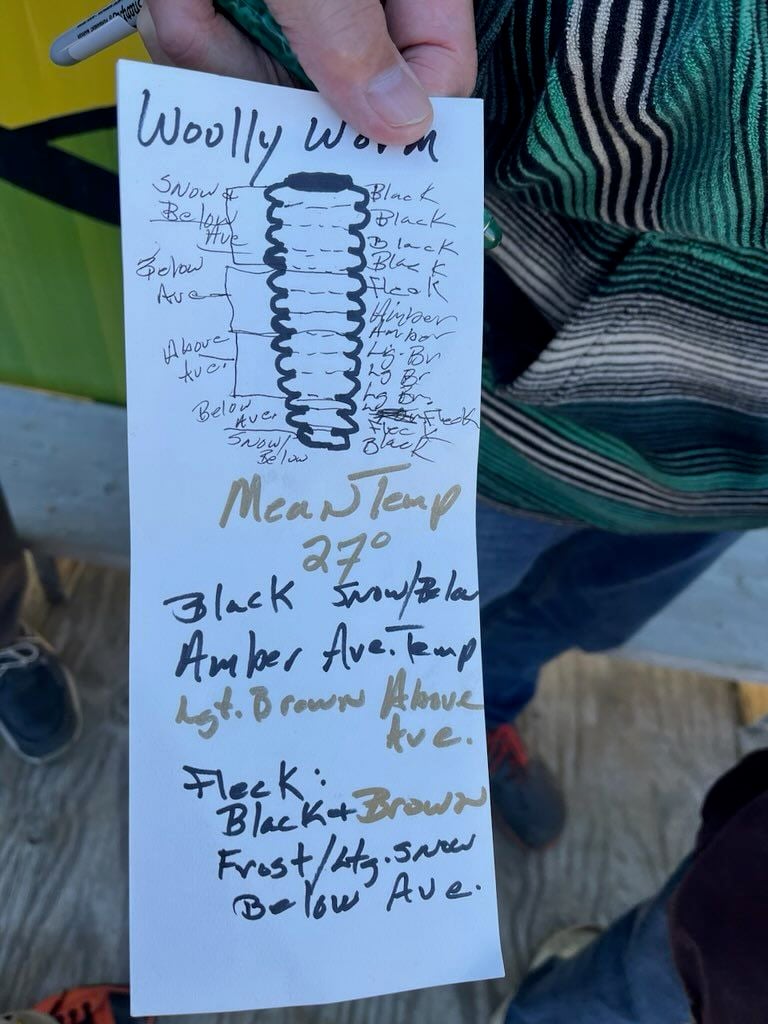 Woolly Worm
Snow &
Below
Ave
Below
Ave
Above
Ave.
Below
Ave.
Snow/
Below
Black
Black
Black
Black
Fleck
Amber
Amber
Lg. Br
Lg Br
Lg Br.
Fleck
Fleck
Black
Mean Temp
27°
Black Snow/Below
Amber Ave. Temp
Lgt. Brown Above
Ave.
Fleck:
Black + Brown
Frost/Ltg. Snow
Below Ave.